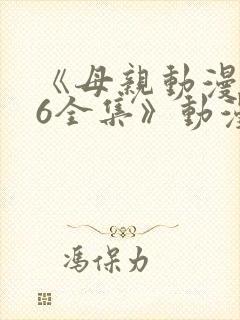 《母親動漫
6全集》動漫
馮保力